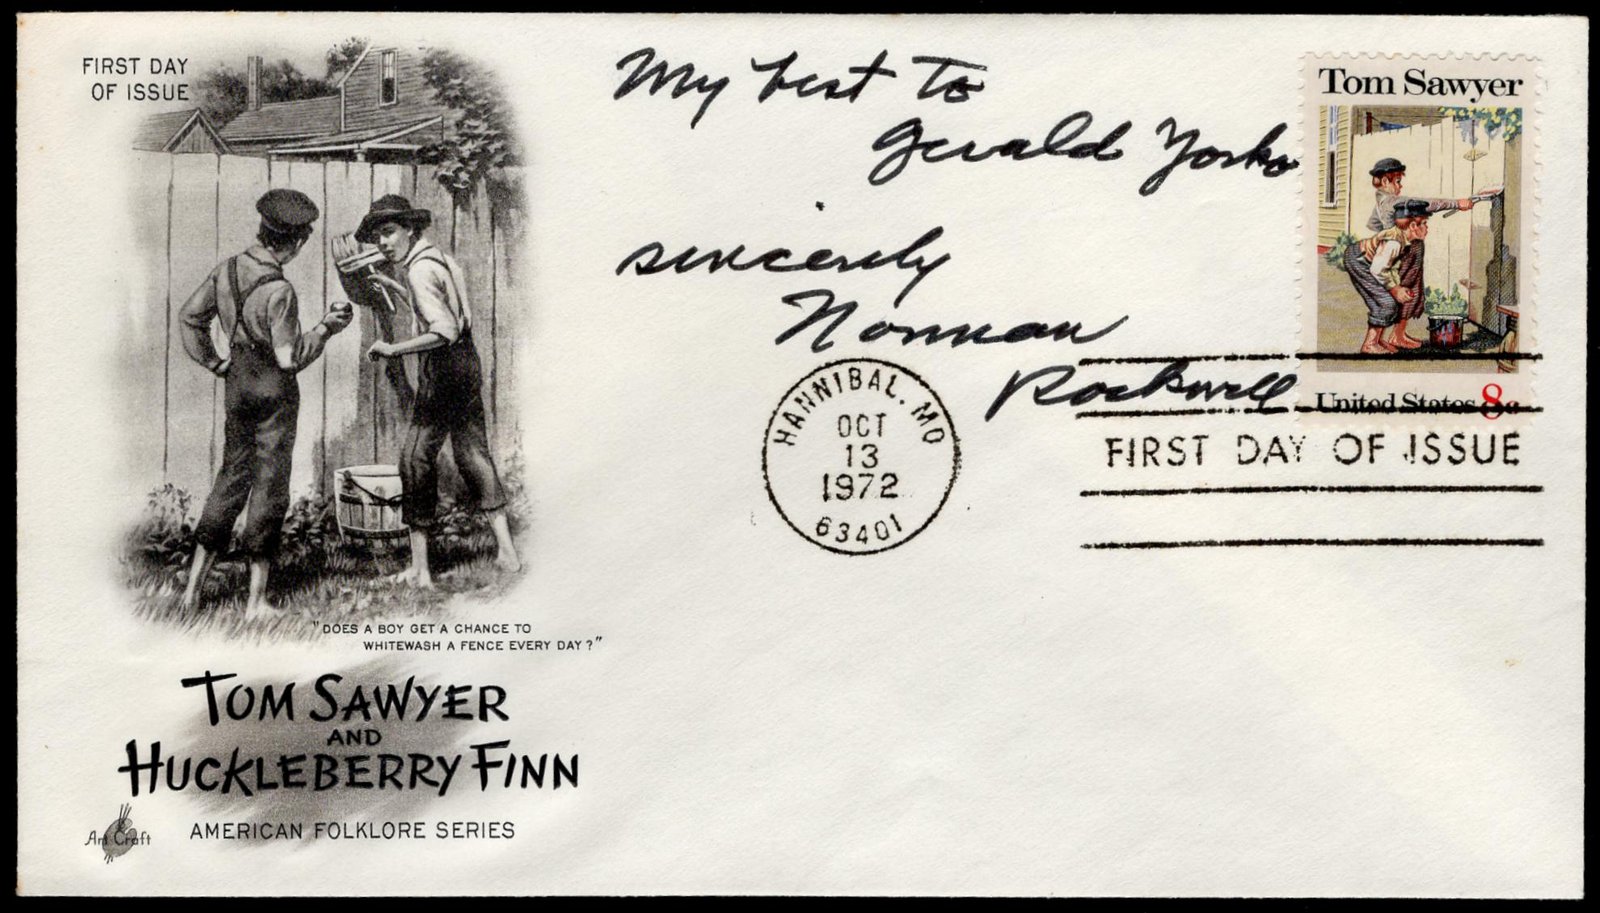 FIRST DAY
OF ISSUE
My best to
Gerald Yorko
sincerely
Norman
Rockwell
Tom Sawyer
United States 8c
HANNIBAL, MO
OCT
13
1972
63401
FIRST DAY OF ISSUE
"DOES A BOY GET A CHANCE TO
WHITEWASH A FENCE EVERY DAY?"
TOM SAWYER
AND
HUCKLEBERRY FINN
Art Craft
AMERICAN FOLKLORE SERIES